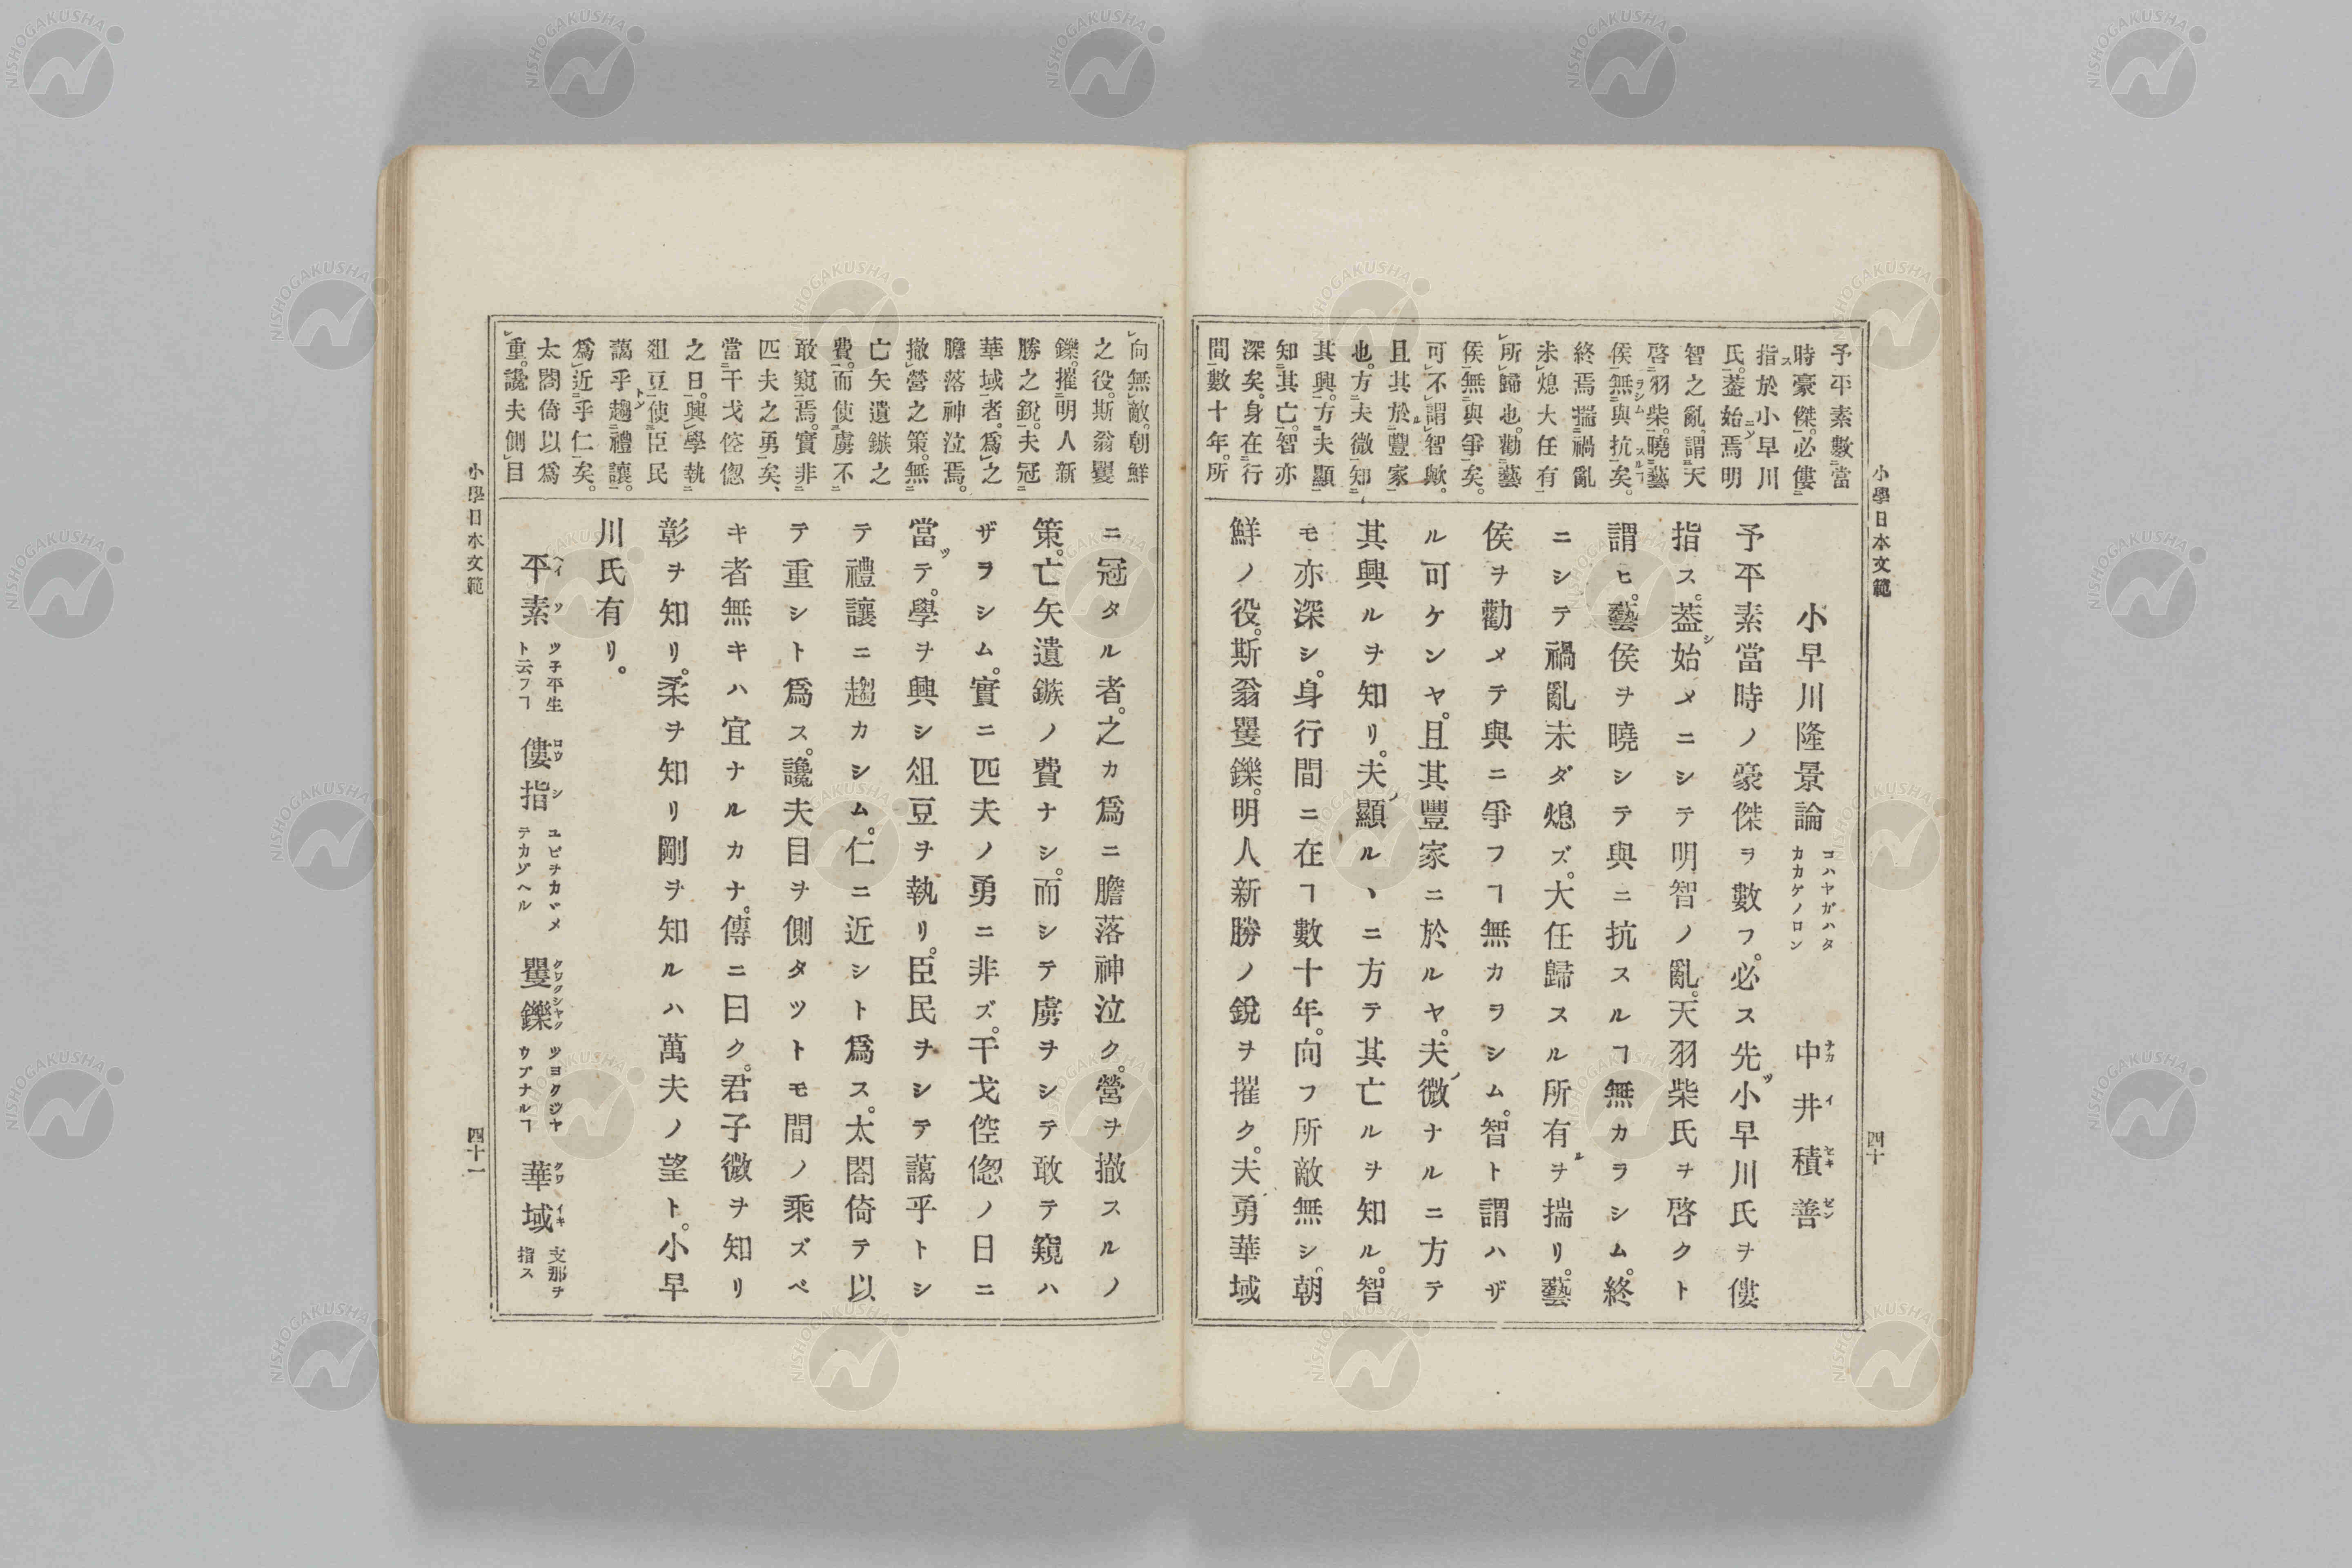 小學日本文範
四十
予平素數當
時豪傑。必僂
指於小早川
氏。葢始焉明
智之亂、謂天
啓羽柴。曉藝
侯無與抗矣。
終焉揣禍亂
未熄大任有
所歸也。勸藝
侯無與爭矣。
可不謂智歟。
且其於豐家
也。方夫微知
其興。方夫顯
知其亡。智亦
深矣。身在行
間數十年。所
小早川隆景論 コハヤガハタカカゲノロン 中井積善
予平素當時ノ豪傑ヲ數フ。必ス先ッ小早川氏ヲ僂
指ス。葢シ始メニシテ明智ノ亂。天羽柴氏ヲ啓クト
謂ヒ。藝侯ヲ曉シテ與ニ抗スルヿ無カラシム。終
ニシテ禍亂未ダ熄ズ。大任歸スル所有ルヲ揣リ。藝
侯ヲ勸メテ與ニ爭フヿ無カヲシム。智ト謂ハザ
ル可ケンヤ。且其豐家ニ於ルヤ。夫ノ微ナルニ方テ
其興ルヲ知リ。夫ノ顯ルヽニ方テ其亡ルヲ知ル。智
モ亦深シ。身行間ニ在ヿ數十年。向フ所敵無シ。朝
鮮ノ役。斯翁矍鑠。明人新勝ノ銳ヲ摧ク。夫勇華域
向無敵。朝鮮
之役。斯翁矍
鑠。摧明人新
勝之銳。夫冠
華域者。爲之
膽落神泣焉。
撤營之策。無
亡矢遺鏃之
費。而使虜不
敢窺焉。實非
匹夫之勇矣、
當干戈倥偬
之日。興學執
俎豆使臣民
藹乎趨禮讓。
爲近乎仁矣。
太閤倚以爲
重。讒夫側目
ニ冠タル者。之カ爲ニ膽落神泣ク。營ヲ撤スルノ
策。亡矢遺鏃ノ費ナシ。而シテ虜ヲシテ敢テ窺ハ
ザヲシム。實ニ匹夫ノ勇ニ非ズ。干戈倥偬ノ日ニ
當ッテ。學ヲ興シ俎豆ヲ執リ。臣民ヲシテ藹乎トシ
テ禮讓ニ趨カシム。仁ニ近シト爲ス。太閤倚テ以
テ重シト爲ス。讒夫目ヲ側タツトモ間ノ乘ズベ
キ者無キハ宜ナルカナ。傳ニ曰ク。君子微ヲ知リ
彰ヲ知リ。柔ヲ知リ剛ヲ知ルハ萬夫ノ望ト。小早
川氏有リ。
平素 ツ子平生ト云フヿ 僂指 ユビヲカヾメテカゾヘル 矍鑠 ツヨクジヤウブナルヿ 華域 支那ヲ指ス
小學日本文範
四十一